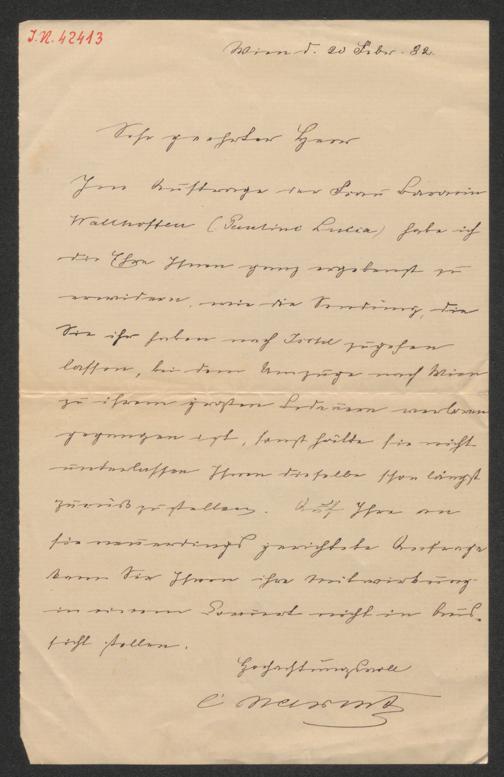 I.N. 42413
Wien d. 20 Febr. 82.
Sehr geehrter Herr
Im Auftrage der Frau Baronin
Wallhoffen (Pauline Lucca) habe ich
die Ehre Ihnen ganz ergebenst zu
erwidern, wie die Sendung, die
Sie ihr haben nach Ischl zugehen
lassen, bei dem Umzuge nach Wien
zu ihrem großen Bedauern verloren
gegangen ist, sonst hätte sie nicht
unterlassen Ihnen dieselbe schon längst
zurückzustellen. Auf Ihre an
sie neuerdings gerichtete Anfrage
kann Sie Ihnen ihre Mitwirkung
in einem Concert nicht in Aus-
sicht stellen.
Hochachtungsvoll